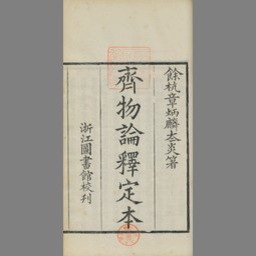 餘杭章炳麟太炎箸
齊物論釋定本
浙江圖書館校刊